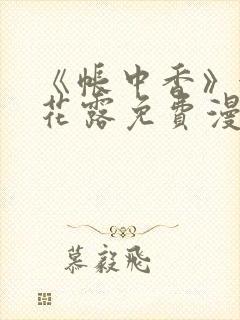 《帐中香》
花露免费漫
慕毅飞